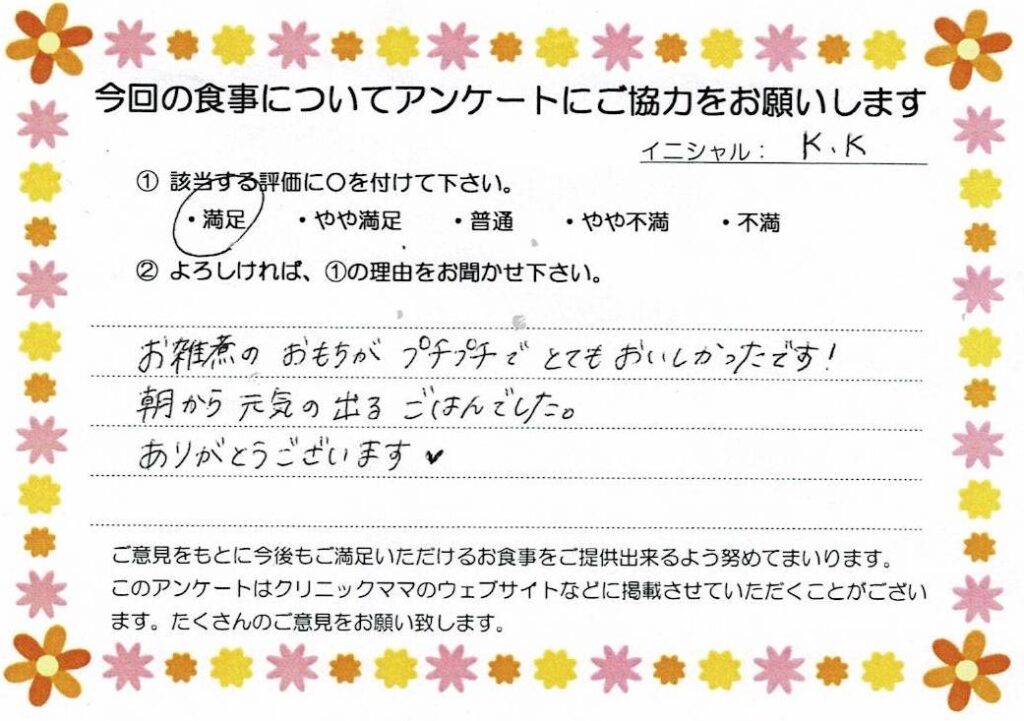 今回の食事についてアンケートにご協力をお願いします
イニシャル： K.K
① 該当する評価に〇を付けて下さい。
・満足 ・やや満足 ・普通 ・やや不満 ・不満
② よろしければ、①の理由をお聞かせ下さい。
お雑煮の おもちが プチプチで とても おいしかったです！
朝から 元気の 出る ごはんでした。
ありがとうございます♥
ご意見をもとに今後もご満足いただけるお食事をご提供出来るよう努めてまいります。
このアンケートはクリニックママのウェブサイトなどに掲載させていただくことがござい
ます。たくさんのご意見をお願い致します。